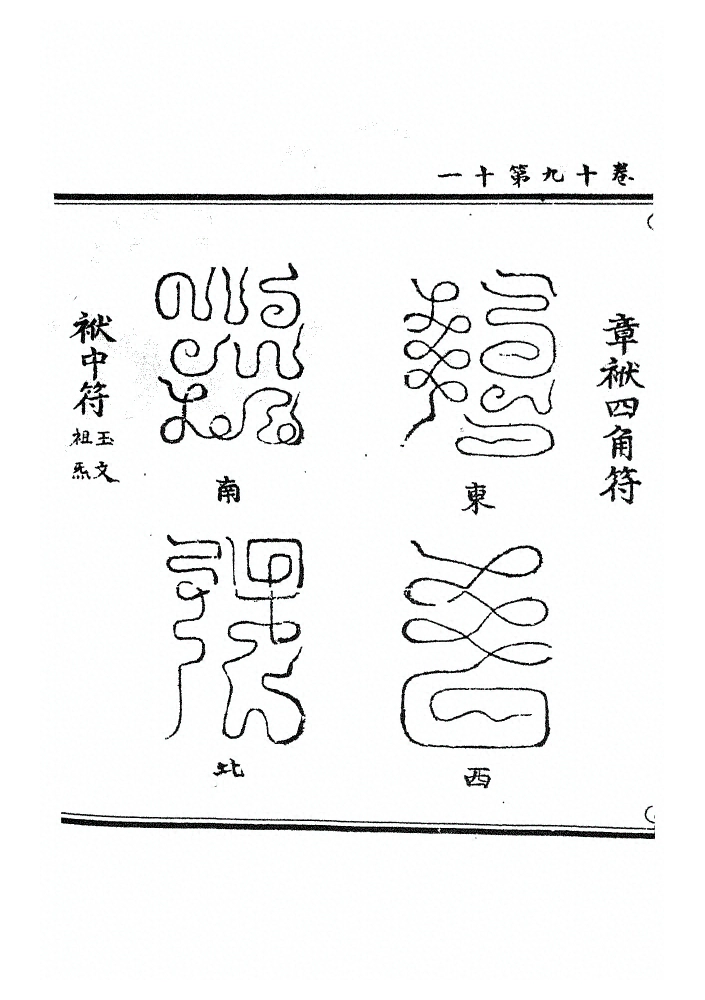 卷十九第十一
章袱四角符
東
西
南
北
袱中符
玉文
祖炁